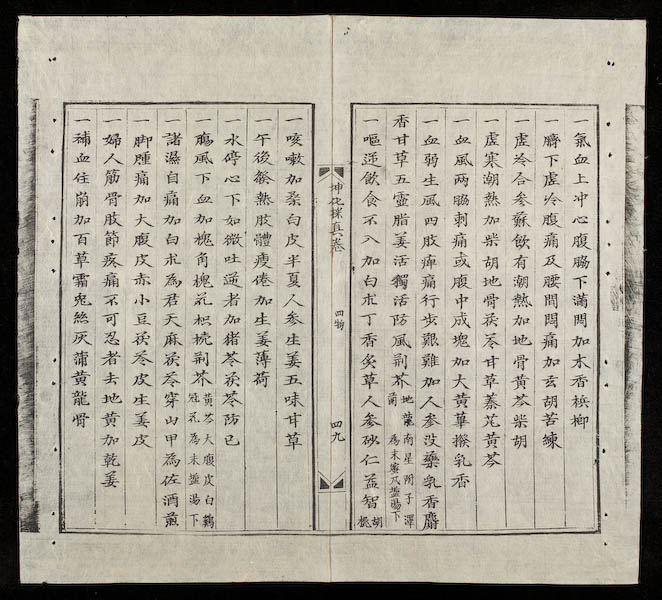 一氣血上冲心腹脇下滿悶加木香梹榔
一臍下虛冷腹痛及腰間悶痛加玄胡苦練
一虛冷合參蘇飲有潮熱加地骨黃芩柴胡
一虛寒潮熱加柴胡地骨茯苓甘草蓁芃黃芩
一血風两脇刺痛或腹中成塊加大黃蓽撥乳香
一血弱生風四肢痺痛行步艱難加人參没藥乳香麝
香甘草五靈脂羗活獨活防風荆芥地龍南星附子澤
蘭為末蜜丸盬湯下
一嘔逆飲食不入加白朮丁香炙草人參砂仁益智胡
桃
坤元採真卷
四物
四九
一咳嗽加桑白皮半夏人參生姜五味甘草
一午後發熱肢體瘦倦加生姜薄荷
一水停心下如微吐逆者加猪苓茯苓防已
一膓風下血加槐角槐花枳梡荆芥黃芩大腹皮白鷄
冠花為末盬湯下
一諸濕自痛加白朮為君天麻茯苓穿山甲為佐酒煎
一脚腫痛加大腹皮赤小豆茯苓皮生姜皮
一婦人筋骨肢節疼痛不可忍者去地黃加乾姜
一補血住崩加百草霜兎絲灰蒲黃龍骨